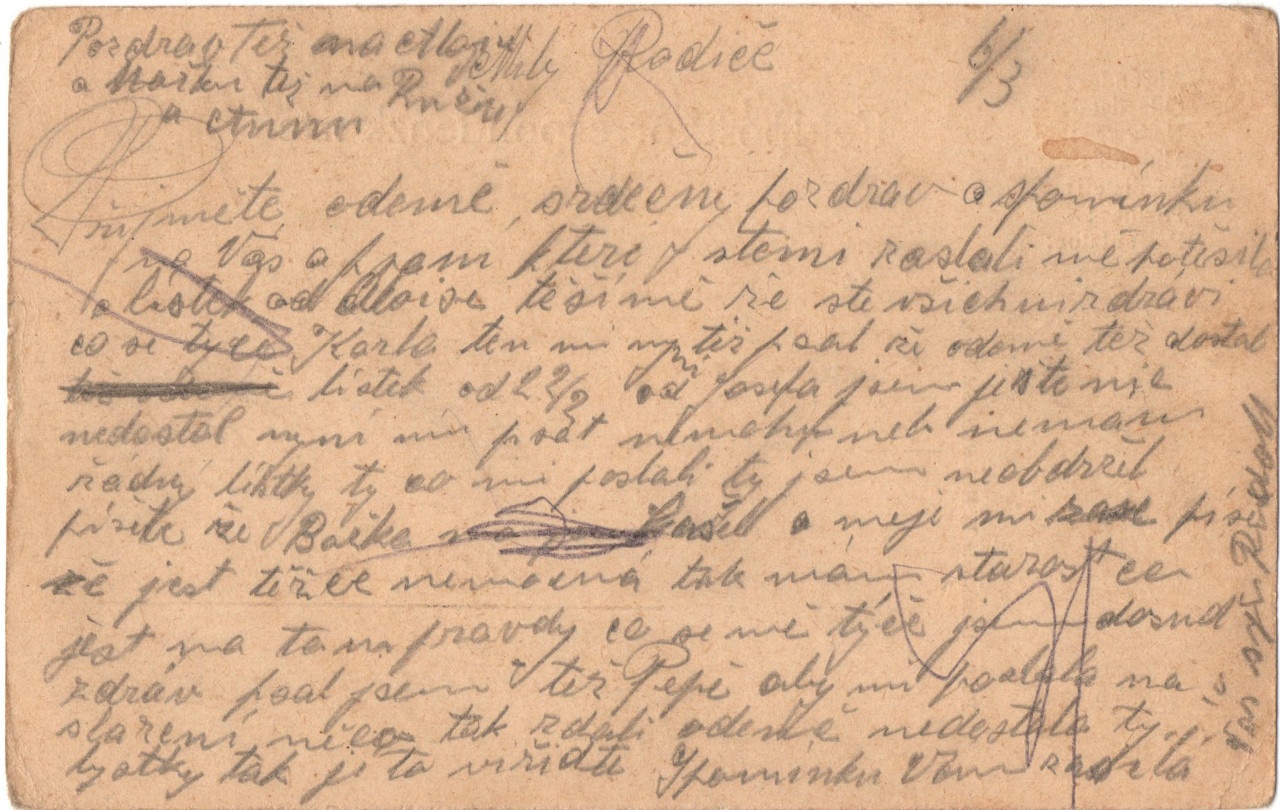 Pozdrav též na
a též na Růžu
a Annu
Milý Rodiče
6/3
Přijměte, odemě, srdečný pozdrav a spomínku
na Vás a psaní které s temi zaslali mě potěšilo
a lístek od Aloise těší mě že ste všichni zdrávi
co se tyče Karla ten mi nyní též psal že odemě též dostal
lístek od 22/2 od Josefa jsem ještě nic
nedostal nyní mu psát nemohu neb nemám
řádný lístky ty co mi poslali ty jsem neobdržel
píšete že Božka a mejí mi zase píš
že jest těžce nemocná tak mám starost co
jest na tom pravdy co se mě týče jsem dosud
zdráv psal jsem též Pepě aby mi poslala na
slažení něco tak zdali odemě nedostala ty
lystky tak je to viřidte Spomínku Vám zasílá
Vás syn Rudolf